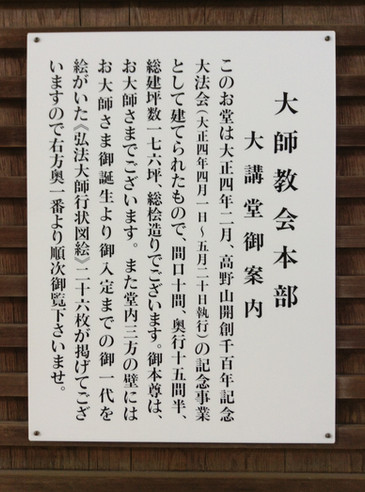 大師教会本部
大講堂御案内
このお堂は大正四年二月、高野山開創千百年記念
大法会(大正四年四月一日~五月二十日執行)の記念事業
として建てられたもので、間口十間、奥行十五間半、
総建坪数一七六坪、総桧造りでございます。御本尊は、
お大師さまでございます。また堂内三方の壁には
お大師さま御誕生より御入定までの御一代を
絵がいた《弘法大師行状図絵》二十六枚が掲げてござ
いますので右方奥一番より順次御覧下さいませ。